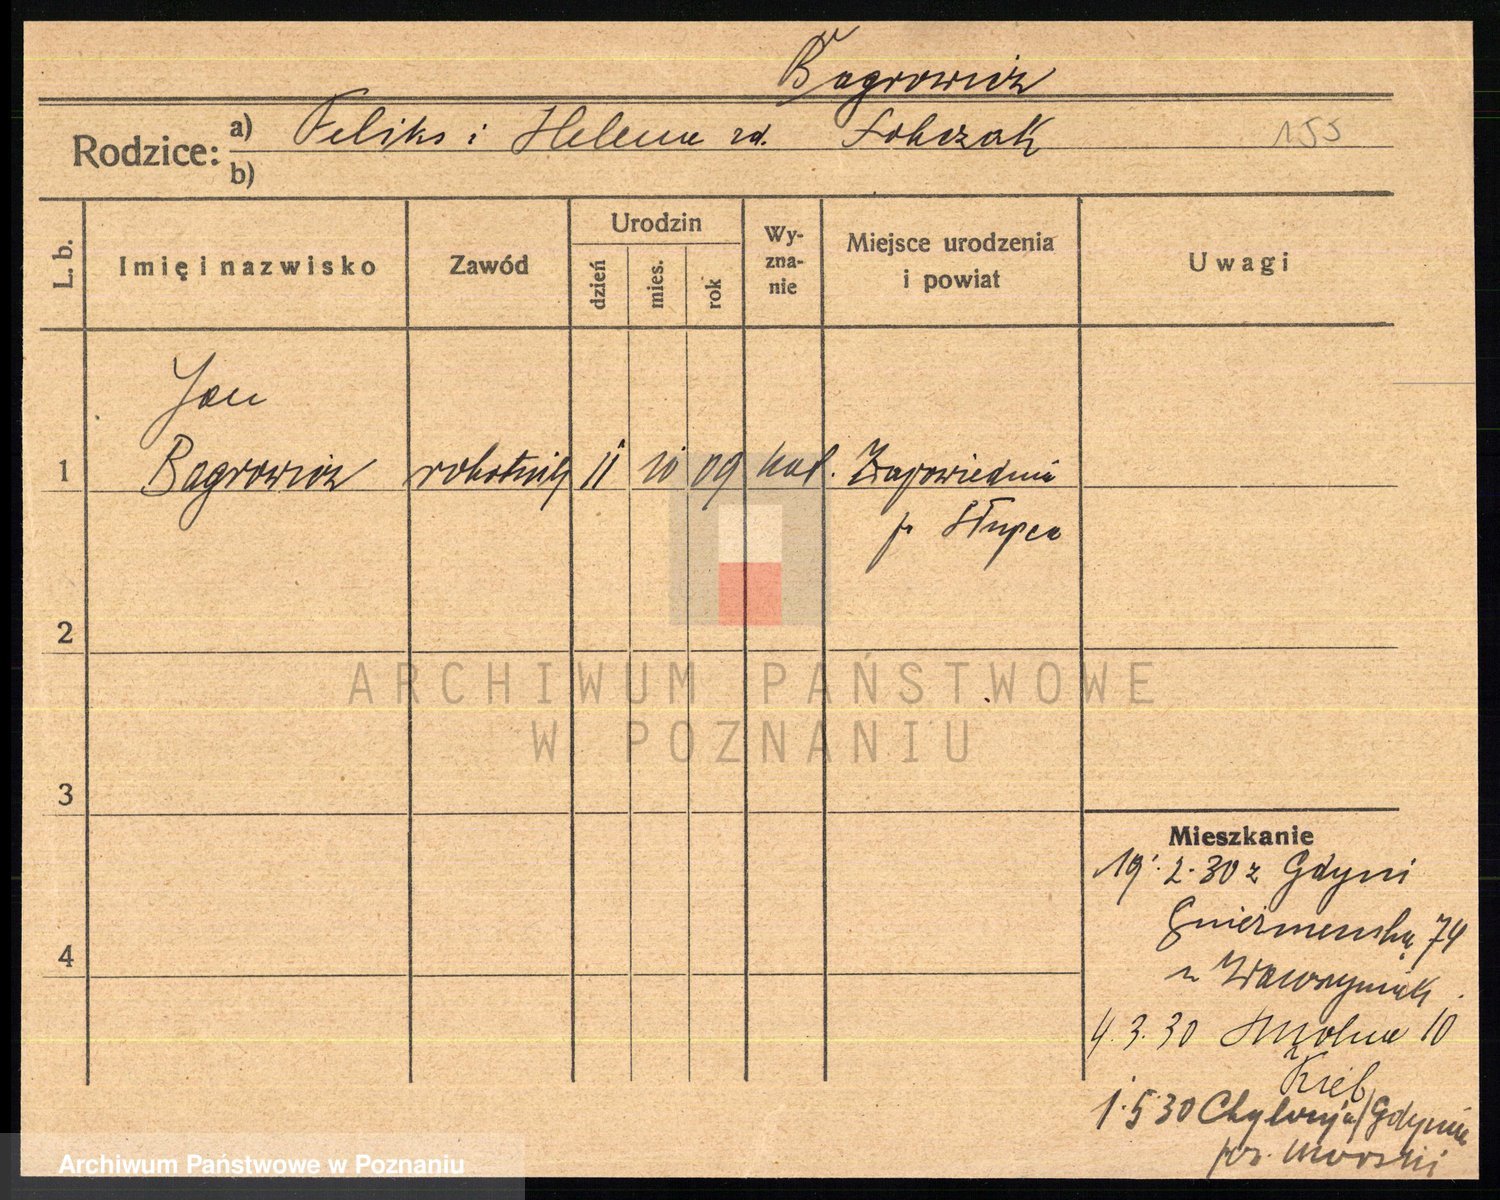 Bagrowicz
Rodzice: a) Feliks i Helena zd. Sobczak 155
b)
L. b. Imię i nazwisko Zawód Urodzin dzień mies. rok Wy-zna-nie Miejsce urodzenia i powiat Uwagi
Jan
1 Bagrowicz robotnik 11 10 09 kat. Zapowiednia
p. Słupca
2
ARCHIWUM PAŃSTWOWE
W POZNANIU
3
Mieszkanie
19.2.30 z Gdyni
74
4
u Wawrzyniak.
4.3.30 Smolna 10
1.5.30 Chylonja/Gdynia
Archiwum Państwowe w Poznaniu